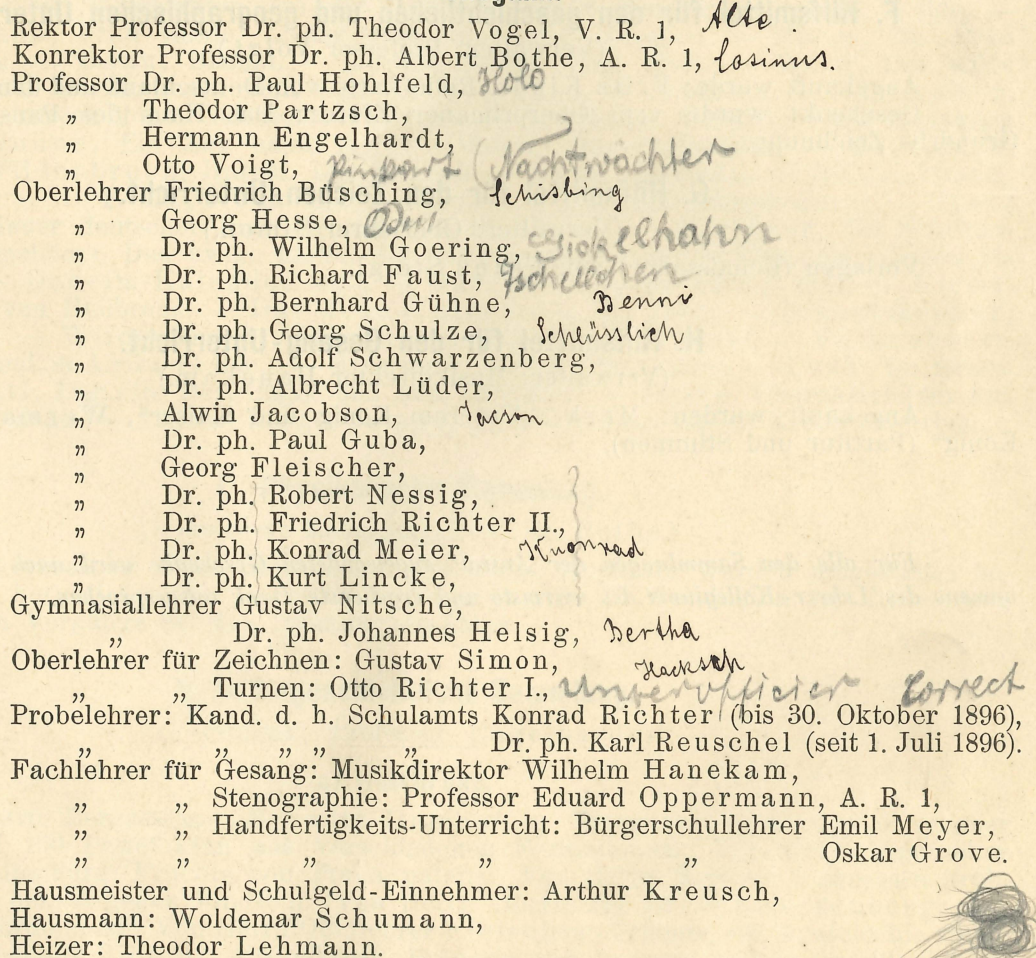 Rektor Professor Dr. ph. Theodor Vogel, V. R. 1, Alte
Konrektor Professor Dr. ph. Albert Bothe, A. R. 1, Cosinus.
Professor Dr. ph. Paul Hohlfeld, Holo
„ Theodor Partzsch,
„ Hermann Engelhardt,
„ Otto Voigt, (Nachtwächter
Oberlehrer Friedrich Büsching, Schisbing
„ Georg Hesse,
„ Dr. ph. Wilhelm Goering, Gickelhahn
„ Dr. ph. Richard Faust,
„ Dr. ph. Bernhard Gühne, Benni
„ Dr. ph. Georg Schulze, Schlüsslich
„ Dr. ph. Adolf Schwarzenberg,
„ Dr. ph. Albrecht Lüder,
„ Alwin Jacobson, Jacson
„ Dr. ph. Paul Guba,
„ Georg Fleischer,
„ Dr. ph. Robert Nessig,
„ Dr. ph. Friedrich Richter II.,
„ Dr. ph. Konrad Meier, Knonrad
„ Dr. ph. Kurt Lincke,
Gymnasiallehrer Gustav Nitsche,
„ Dr. ph. Johannes Helsig, Bertha
Oberlehrer für Zeichnen: Gustav Simon, Hacksch
„ „ Turnen: Otto Richter I., Unterofficier Correct
Probelehrer: Kand. d. h. Schulamts Konrad Richter (bis 30. Oktober 1896),
„ „ „ „ „ Dr. ph. Karl Reuschel (seit 1. Juli 1896).
Fachlehrer für Gesang: Musikdirektor Wilhelm Hanekam,
„ „ Stenographie: Professor Eduard Oppermann, A. R. 1,
„ „ Handfertigkeits-Unterricht: Bürgerschullehrer Emil Meyer,
„ „ „ „ „ Oskar Grove.
Hausmeister und Schulgeld-Einnehmer: Arthur Kreusch,
Hausmann: Woldemar Schumann,
Heizer: Theodor Lehmann.